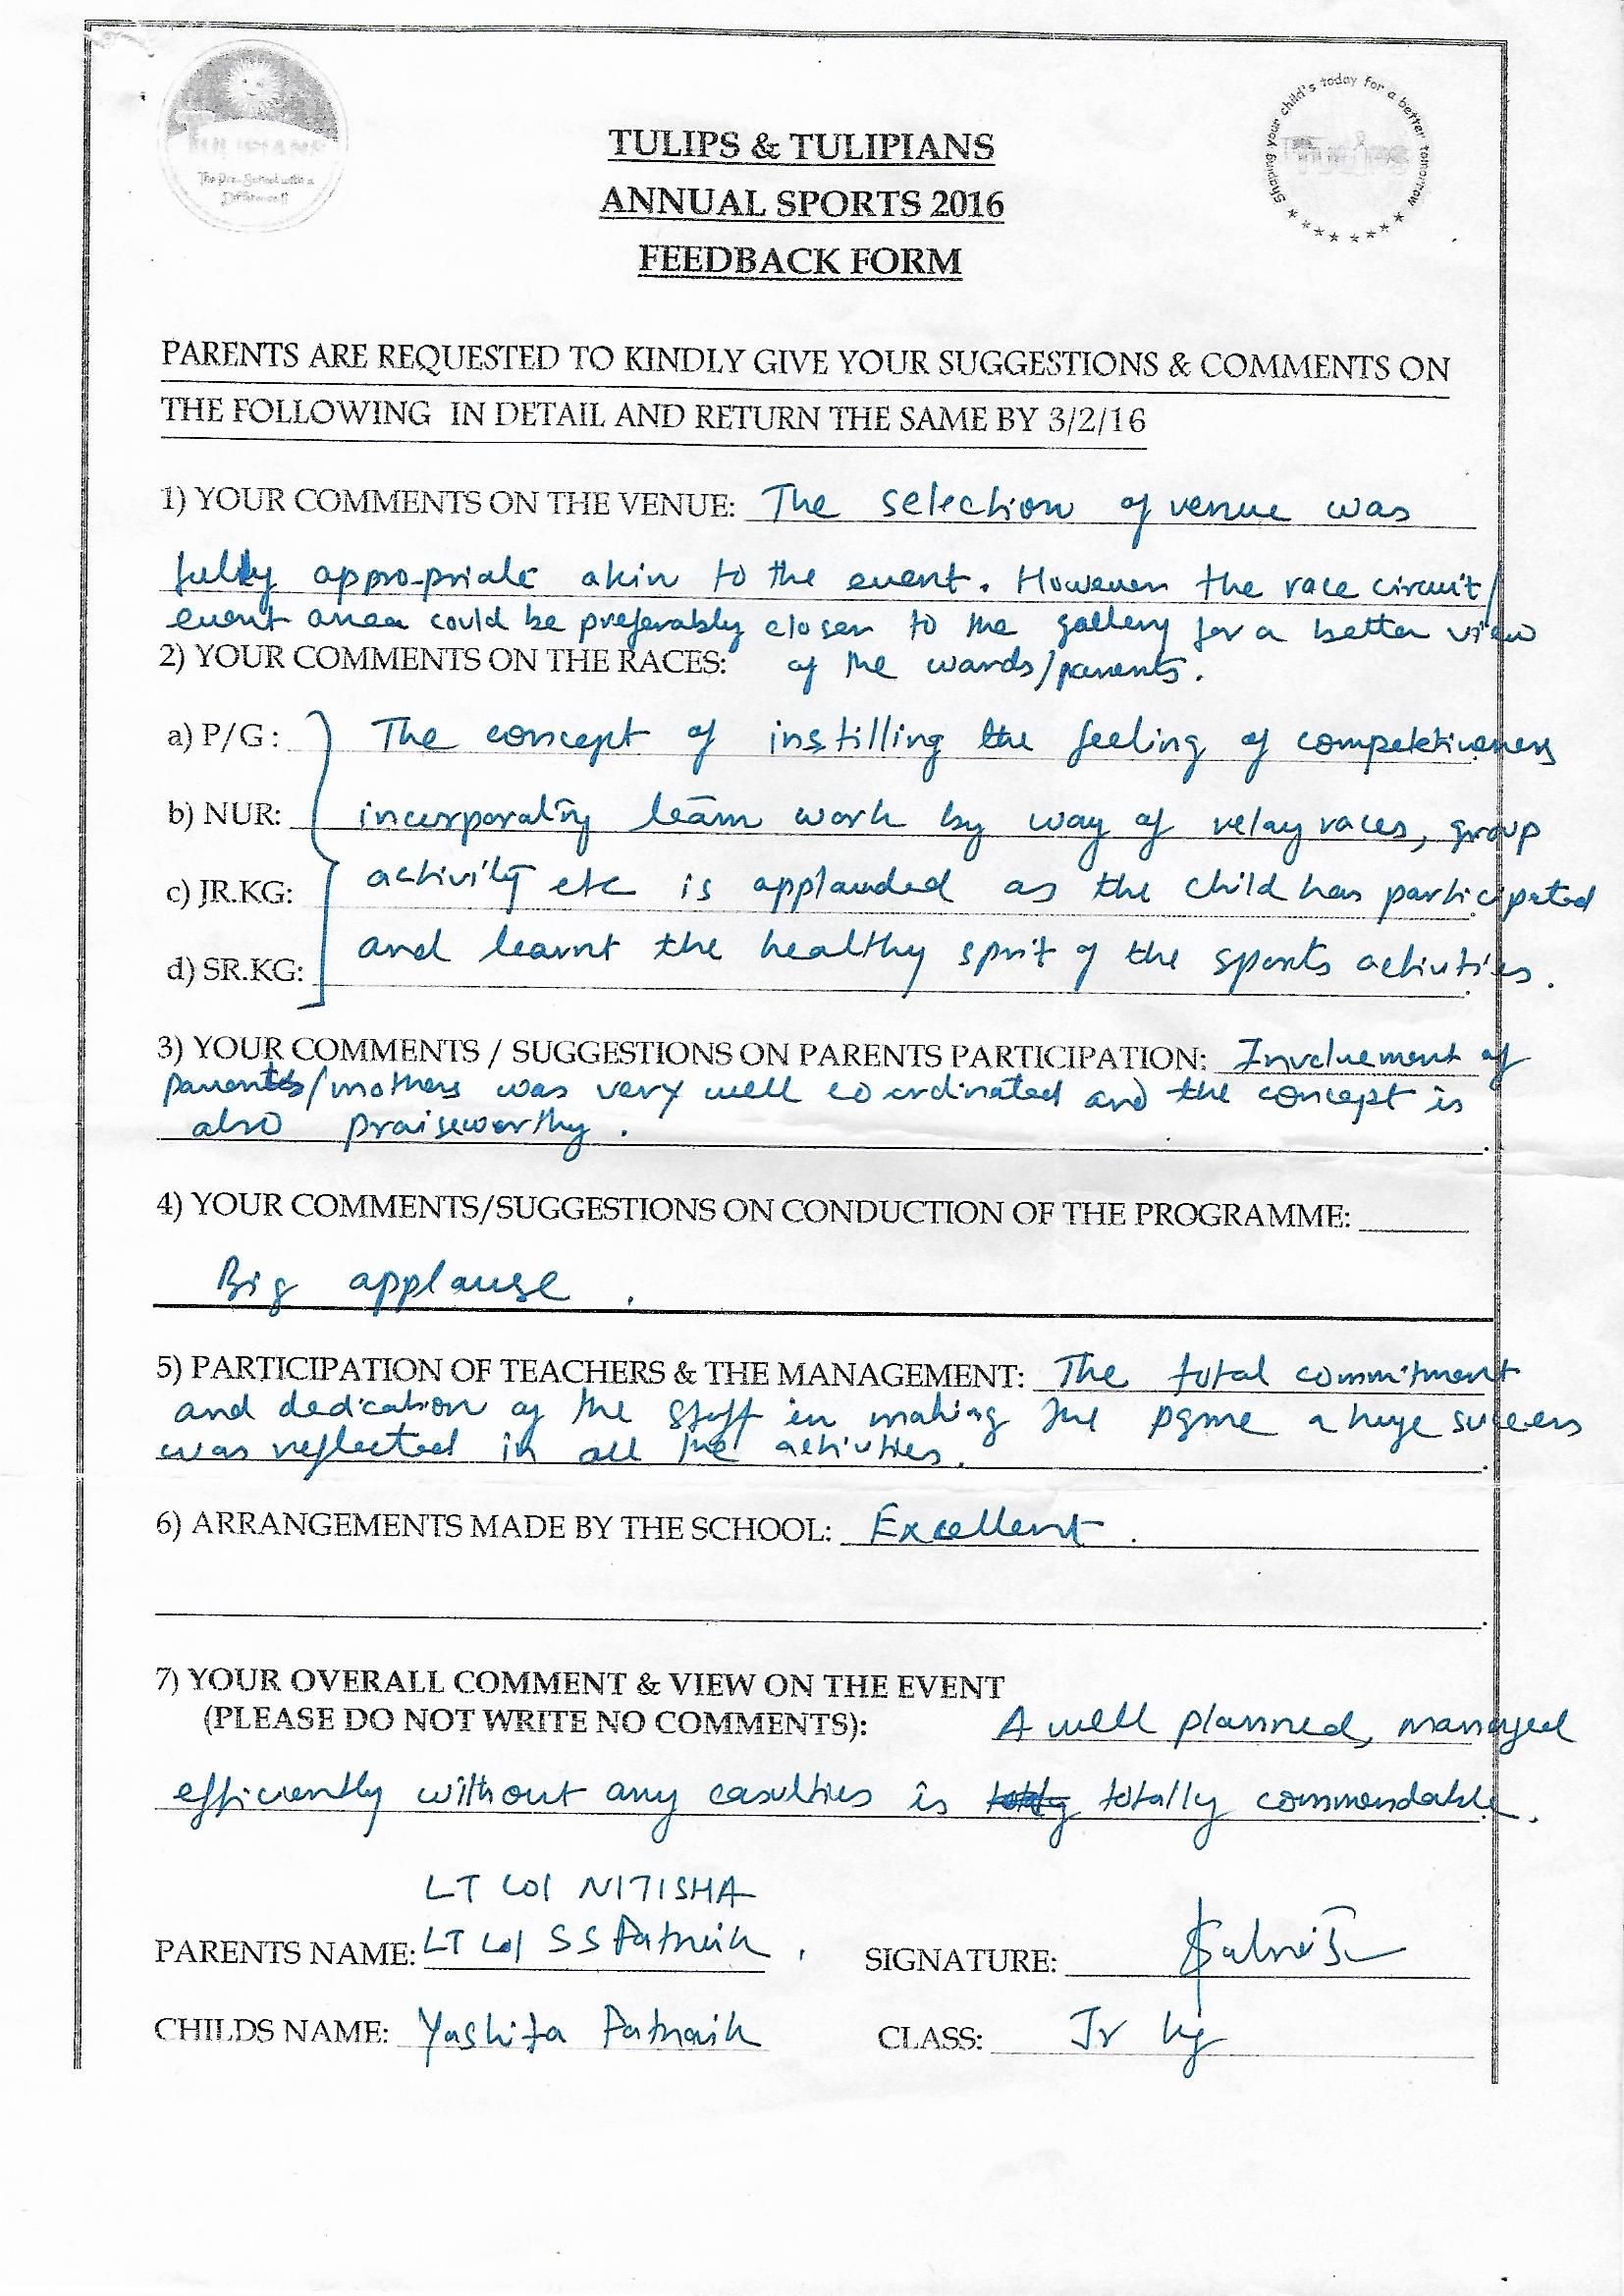 TULIPIANS
The Pre-School with a
Difference!!
Shaping your child's today for a better tomorrow
Tulips
TULIPS & TULIPIANS
ANNUAL SPORTS 2016
FEEDBACK FORM
PARENTS ARE REQUESTED TO KINDLY GIVE YOUR SUGGESTIONS & COMMENTS ON
THE FOLLOWING IN DETAIL AND RETURN THE SAME BY 3/2/16
1) YOUR COMMENTS ON THE VENUE: The selection of venue was
fully appropriate akin to the event. However the race circuit/
event area could be preferably closer to the gallery for a better view
2) YOUR COMMENTS ON THE RACES: of the wards/parents.
a) P/G: The concept of instilling the feeling of competetiveness
b) NUR: incorporating team work by way of relay races, group
c) JR.KG: activity etc is applauded as the child has participated
d) SR.KG: and learnt the healthy sprit of the sports activities.
3) YOUR COMMENTS / SUGGESTIONS ON PARENTS PARTICIPATION: Involvement of
parents/mothers was very well coordinated and the concept is
also praiseworthy.
4) YOUR COMMENTS/SUGGESTIONS ON CONDUCTION OF THE PROGRAMME:
Big applause.
5) PARTICIPATION OF TEACHERS & THE MANAGEMENT: The total commitment
and dedication of the staff in making the pgme a huge success
was reflected in all the activities.
6) ARRANGEMENTS MADE BY THE SCHOOL: Excellent.
7) YOUR OVERALL COMMENT & VIEW ON THE EVENT
(PLEASE DO NOT WRITE NO COMMENTS): A well planned, managed
efficiently without any casulties is totally commendable.
LT Col NITISHA
PARENTS NAME: LT Col S S Patnaik. SIGNATURE:
CHILDS NAME: Yashita Patnaik CLASS: Jr kg